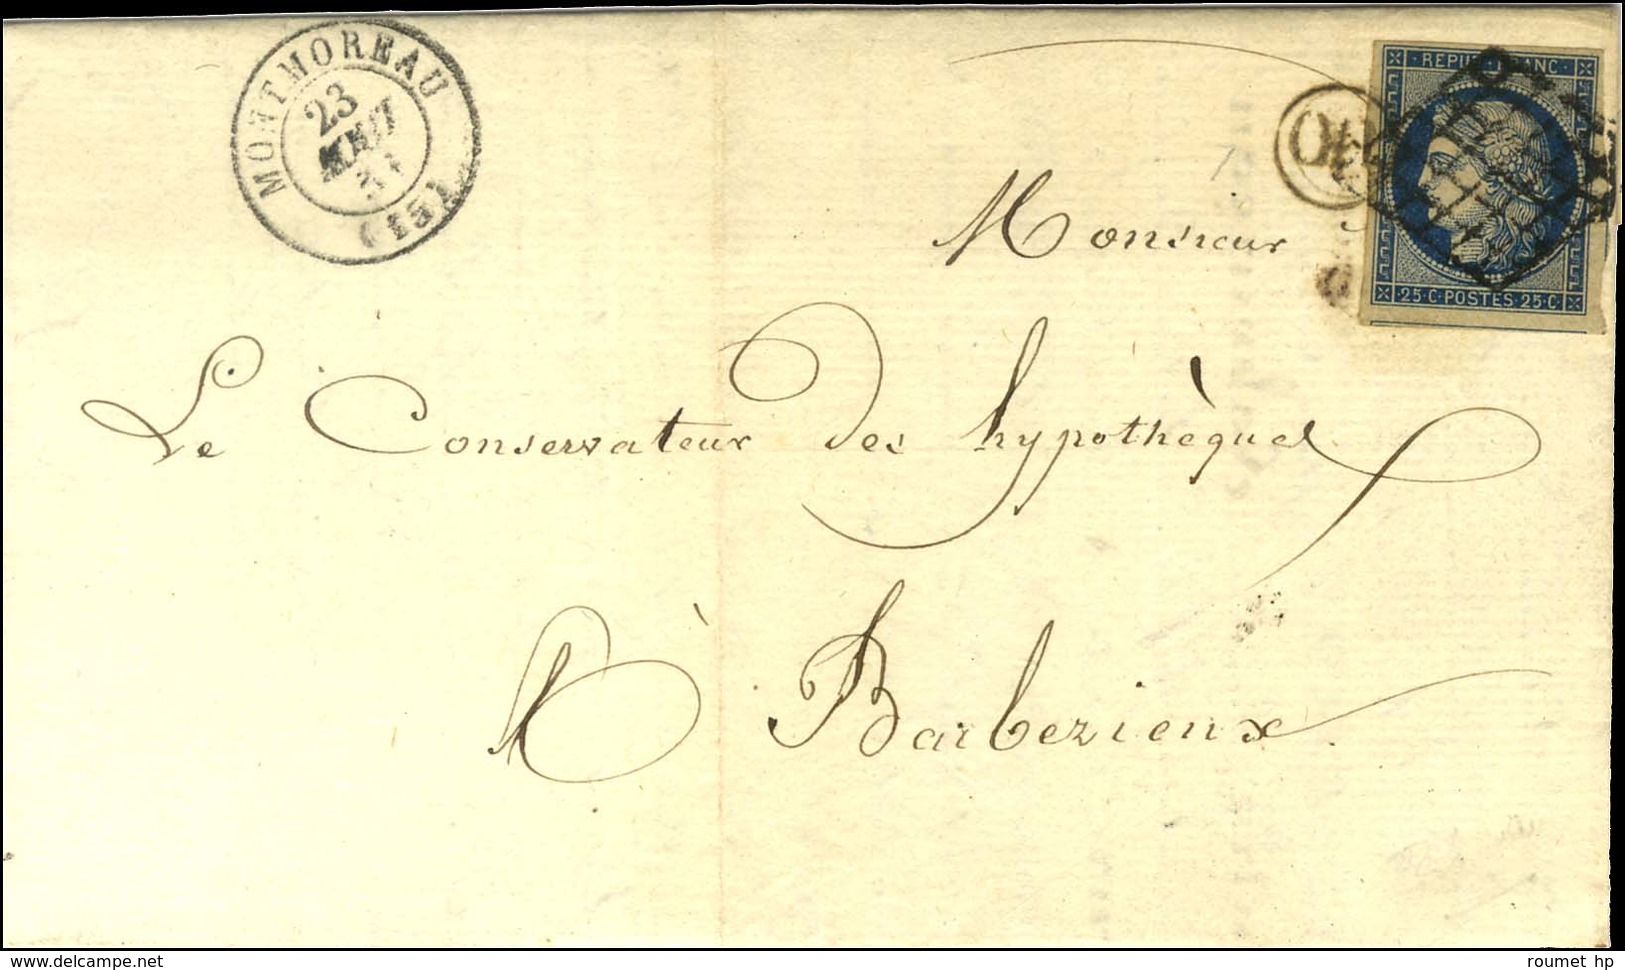 MONTMOREAU
23
(15)
OR
REPUB FRANC
25 · C · POSTES · 25 · C
Monsieur
Le Conservateur des hypothèques
à Barbezieux
www.delcampe.net
roumet hp